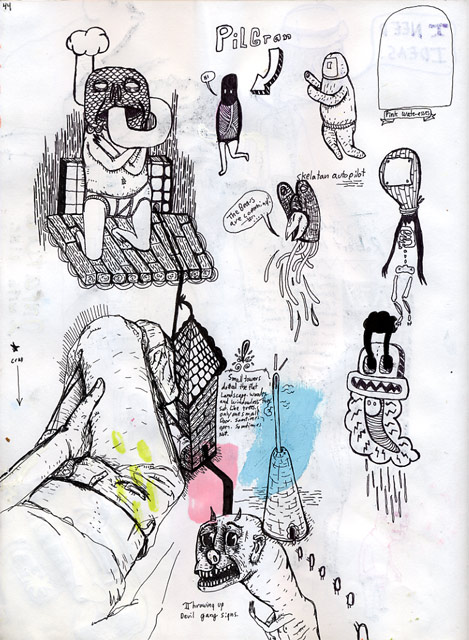 44
PiLGram
Hi
I NEE
IDEAS
Pink Water-ese
skelatan autopilot
The Bears
are comming!
crap
Small towers
dotted the flat
Landscape. wooden
and windowless they
sat. One room,
only one small
door. Sometimes
open. Sometimes
not.
Throwing up
Devil gang signs.